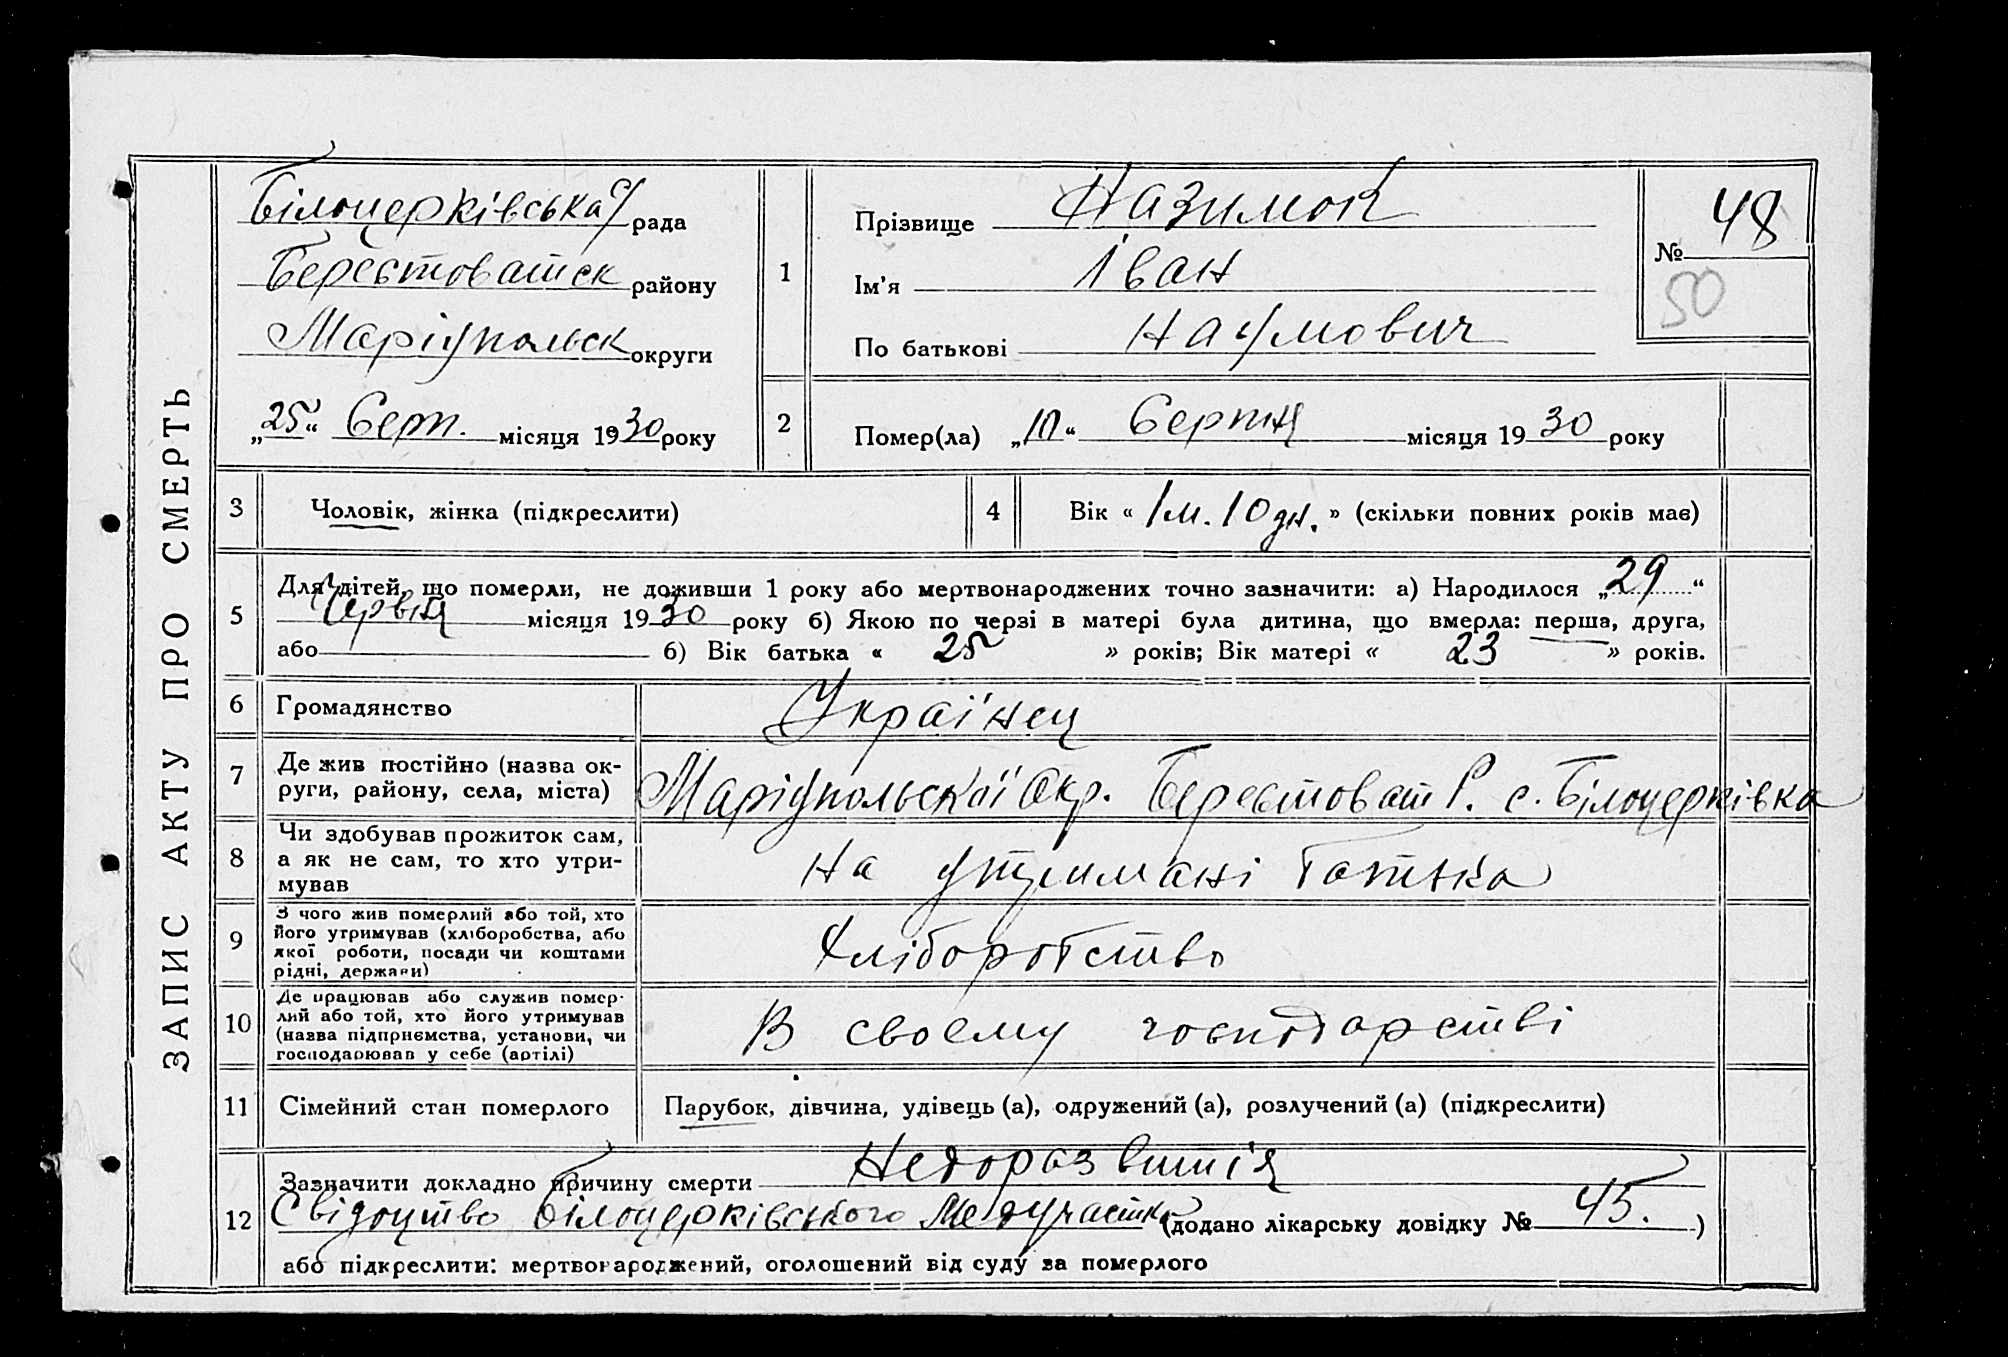 ЗАПИС АКТУ ПРО СМЕРТЬ
Білоцерківська с/рада
Берестоватск району
Маріупольск округи
„25“ Серп. місяця 1930 року
1
Прізвище Назимок
Ім'я Іван
По батькові Наумович
№ 48
50
2
Помер(ла) „10“ Серпня місяця 1930 року
3 Чоловік, жінка (підкреслити)
4 Вік « 1 м. 10 дн. » (скільки повних років має)
5 Для дітей, що померли, не доживши 1 року або мертвонароджених точно зазначити: а) Народилося „29“
Червня місяця 1930 року б) Якою по черзі в матері була дитина, що вмерла: перша, друга,
або б) Вік батька « 25 » років; Вік матері « 23 » років.
6 Громадянство Українец
7 Де жив постійно (назва ок-
руги, району, села, міста) Маріупольскої Окр. Берестоват Р. с. Білоцерківка
8 Чи здобував прожиток сам,
а як не сам, то хто утри-
мував На утримані батька
9 З чого жив померлий або той, хто
його утримував (хліборобства, або
якої роботи, посади чи коштами
рідні, держави) Хліборобство
10 Де працював або служив помер-
лий або той, хто його утримував
(назва підприємства, установи, чи
господарював у себе (артілі) В своему господарстві
11 Сімейний стан померлого Парубок, дівчина, удівець (а), одружений (а), розлучений (а) (підкреслити)
12 Зазначити докладно причину смерти Недоразвитія
Свідоцтво Білоцерківського Медучастка (додано лікарську довідку № 45.)
або підкреслити: мертвонароджений, оголошений від суду за померлого